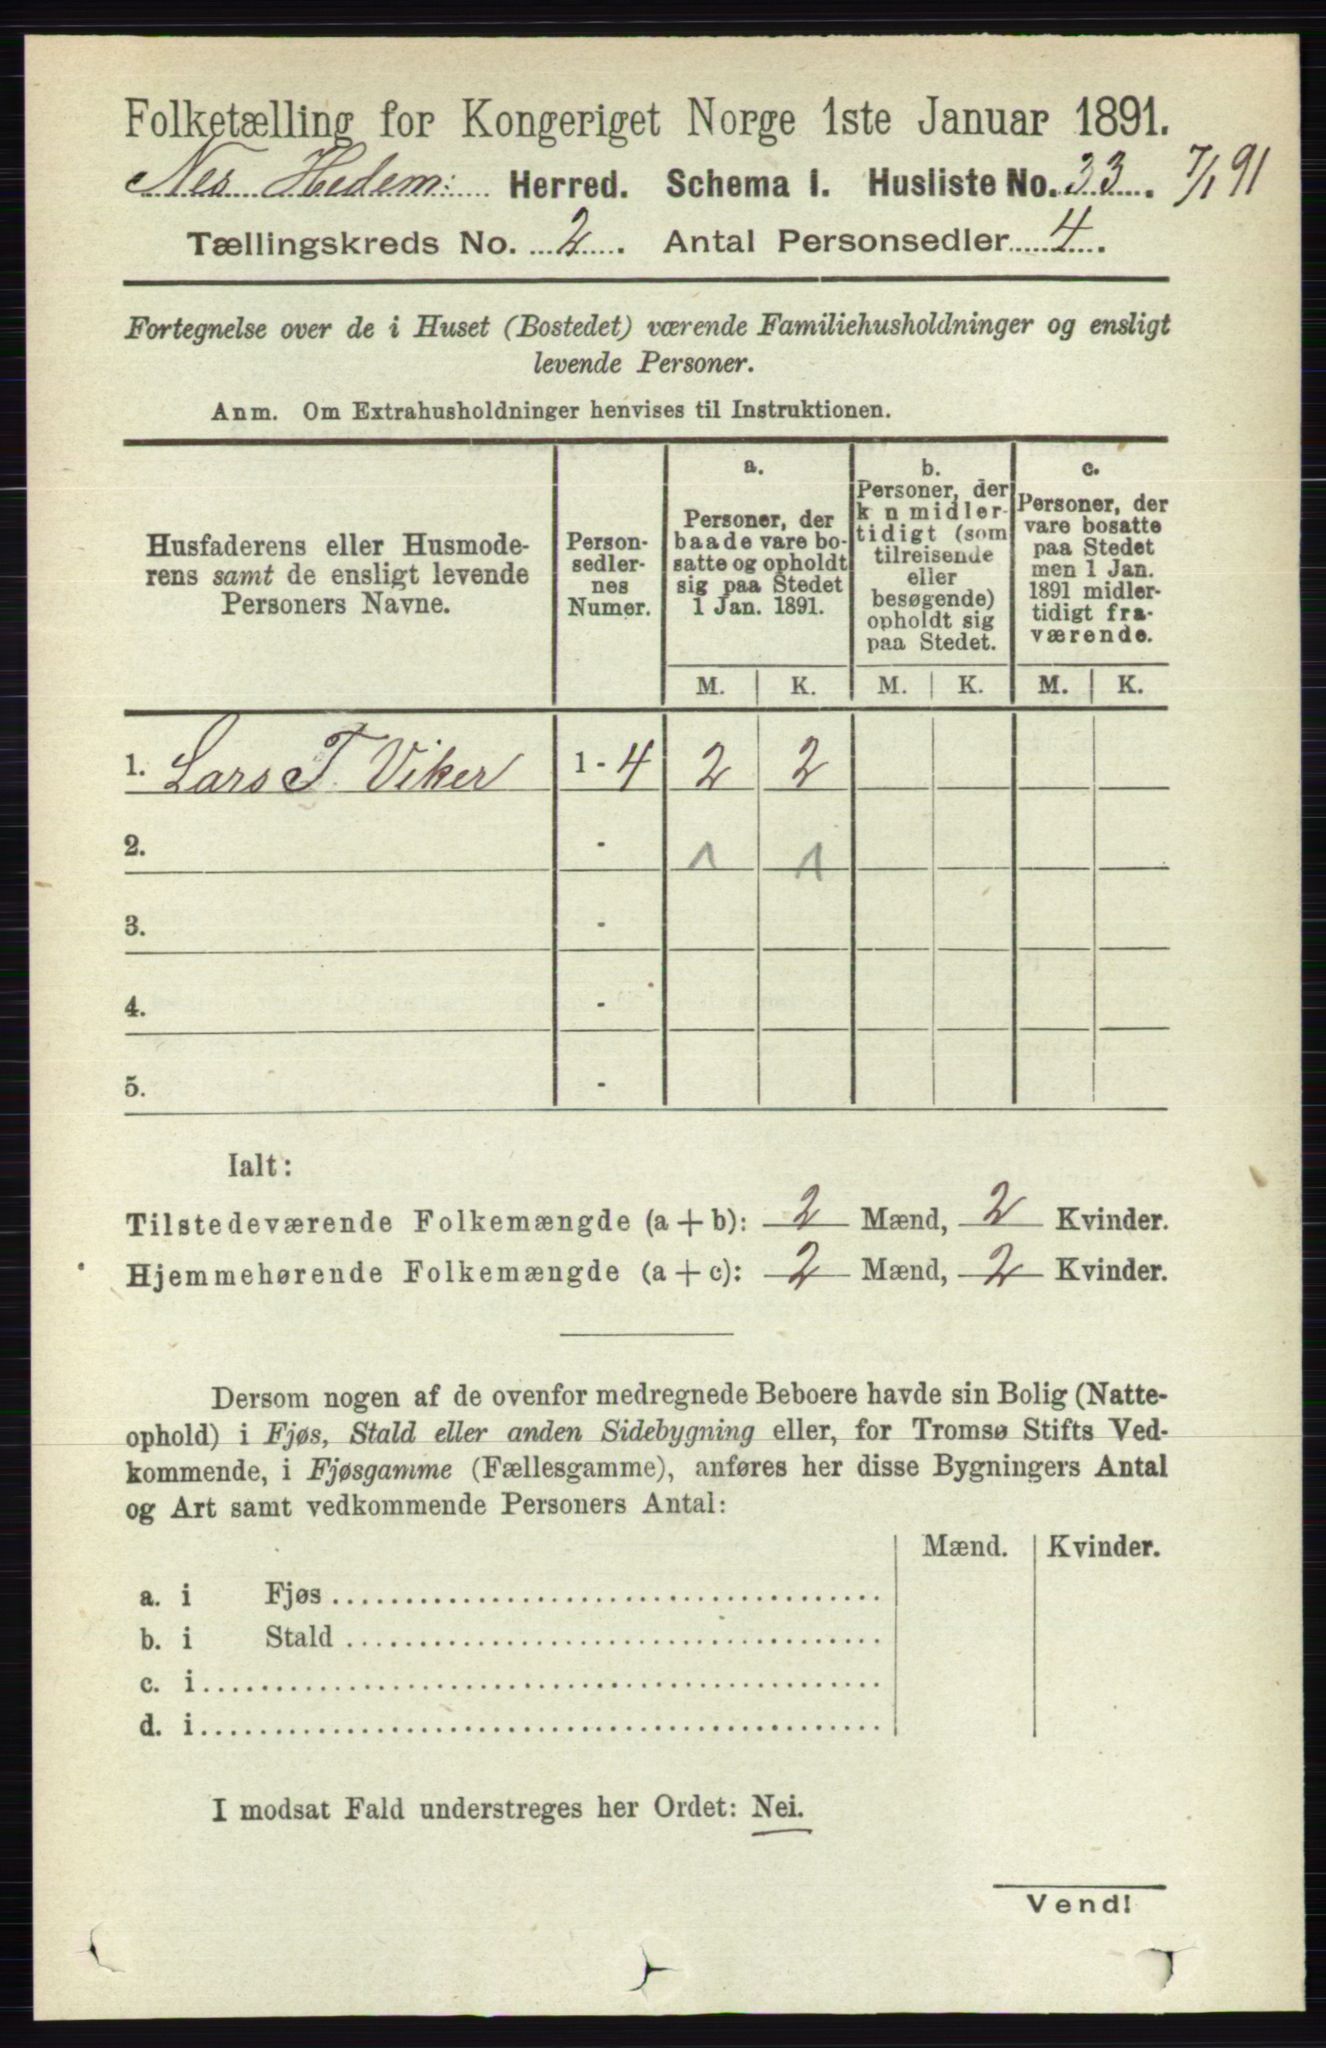 Folketælling for Kongeriget Norge 1ste Januar 1891.
Nes Hedem: Herred. Schema I. Husliste No. 33. 7/1 91
Tællingskreds No. 2. Antal Personsedler 4.
Fortegnelse over de i Huset (Bostedet) værende Familiehusholdninger og ensligt
levende Personer.
Anm. Om Extrahusholdninger henvises til Instruktionen.
Husfaderens eller Husmode-
rens samt de ensligt levende
Personers Navne.
Person-
sedler-
nes
Numer.
a.
Personer, der
baade vare bo-
satte og opholdt
sig paa Stedet
1 Jan. 1891.
b.
Personer, der
k n midler-
tidigt (som
tilreisende
eller
besøgende)
opholdt sig
paa Stedet.
c.
Personer, der
vare bosatte
paa Stedet
men 1 Jan.
1891 midler-
tidigt fra-
værende.
M. K. M. K. M. K.
1. Lars T. Viker 1 - 4 2 2
2. - 1 1
3. -
4. -
5. -
Ialt:
Tilstedeværende Folkemængde (a + b): 2 Mænd, 2 Kvinder.
Hjemmehørende Folkemængde (a + c): 2 Mænd, 2 Kvinder.
Dersom nogen af de ovenfor medregnede Beboere havde sin Bolig (Natte-
ophold) i Fjøs, Stald eller anden Sidebygning eller, for Tromsø Stifts Ved-
kommende, i Fjøsgamme (Fællesgamme), anføres her disse Bygningers Antal
og Art samt vedkommende Personers Antal:
Mænd. Kvinder.
a. i Fjøs
b. i Stald
c. i
d. i
I modsat Fald understreges her Ordet: Nei.
Vend!